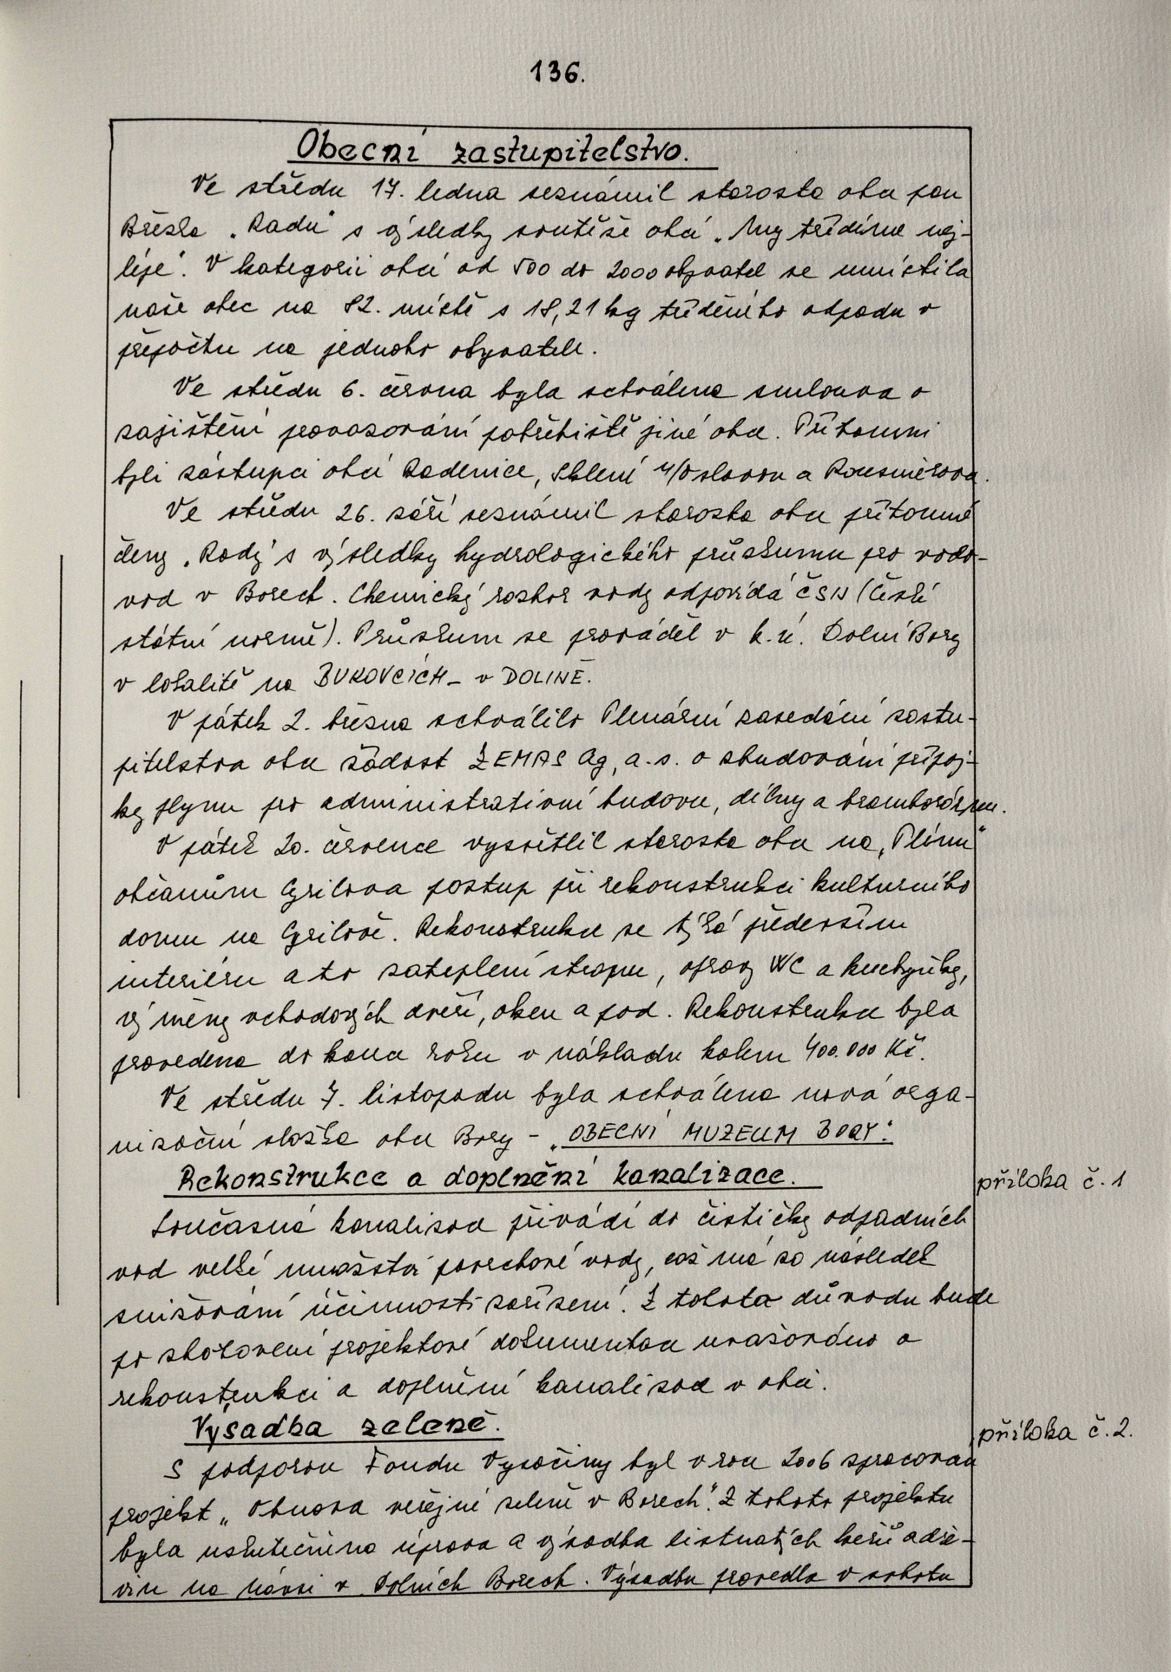 136.
Obecní zastupitelstvo.
Ve středu 17. ledna seznámil starosta obce pan
Březka „Radu" s výsledky soutěže obcí „My třídíme nej-
lépe". V kategorii obcí od 500 do 2000 obyvatel se umístila
naše obec na 82. místě s 18,21 kg tříděného odpadu v
přepočtu na jednoho obyvatele.
Ve středu 6. června byla schválena smlouva o
zajištění provozování pohřebiště jiné obce. Přítomni
byli zástupci obcí Radenice, Sklené n/Oslavou a Krásněves.
Ve středu 26. září seznámil starosta obce přítomné
členy „Rady" s výsledky hydrologického průzkumu pro vodo-
vod v Borech. Chemický rozbor vody odpovídá ČSN (České
státní normě). Průzkum se prováděl v k.ú. Dolní Bory
v lokalitě na BUKOVCÍCH - v DOLINĚ.
V pátek 2. března schválilo Plenární zasedání zastu-
pitelstva obce žádost ZEMAS Ag, a.s. o zbudování přípoj-
ky plynu pro administrativní budovu, dílny a bramborárnu.
V pátek 20. července vysvětlil starosta obce na „Plénu"
občanům Cyrilova postup při rekonstrukci kulturního
domu na Cyrilově. Rekonstrukce se týká především
interiéru a to zateplení stropu, opravy WC a kuchyňky,
výměny vchodových dveří, oken a pod. Rekonstrukce byla
provedena do konce roku v nákladu kolem 400.000 Kč.
Ve středu 7. listopadu byla schválena nová orga-
nizační složka obce Bory - „OBECNÍ MUZEUM BORY".
Rekonstrukce a doplnění kanalizace.
příloha č. 1
Současná kanalizace přivádí do čističky odpadních
vod velké množství povrchové vody, což má za následek
snižování účinnosti zařízení. Z tohoto důvodu bude
po zhotovení projektové dokumentace uvažováno o
rekonstrukci a doplnění kanalizace v obci.
Výsadba zeleně.
příloha č. 2.
S podporou Fondu Vysočiny byl v roce 2006 zpracován
projekt „Obnova veřejné zeleně v Borech". Z tohoto projektu
byla uskutečněna úprava a výsadba listnatých keřů a dře-
vin na návsi v Dolních Borech. Výsadbu provedla v sobotu